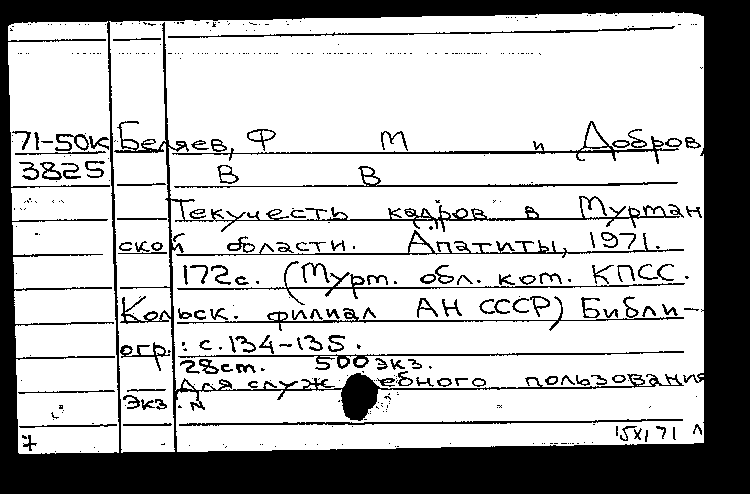 71-50к Беляев, Ф М и Добров,
3825 В В
Текучесть кадров в Муртан
ской области. Апатиты, 1971.
172с. (Мурт. обл. ком. КПСС.
Кольск. филиал АН СССР) Библи-
огр.: с.134-135.
28см. 500 экз.
Для служ ебного пользования
Экз. N
7 15 XI 71 Л